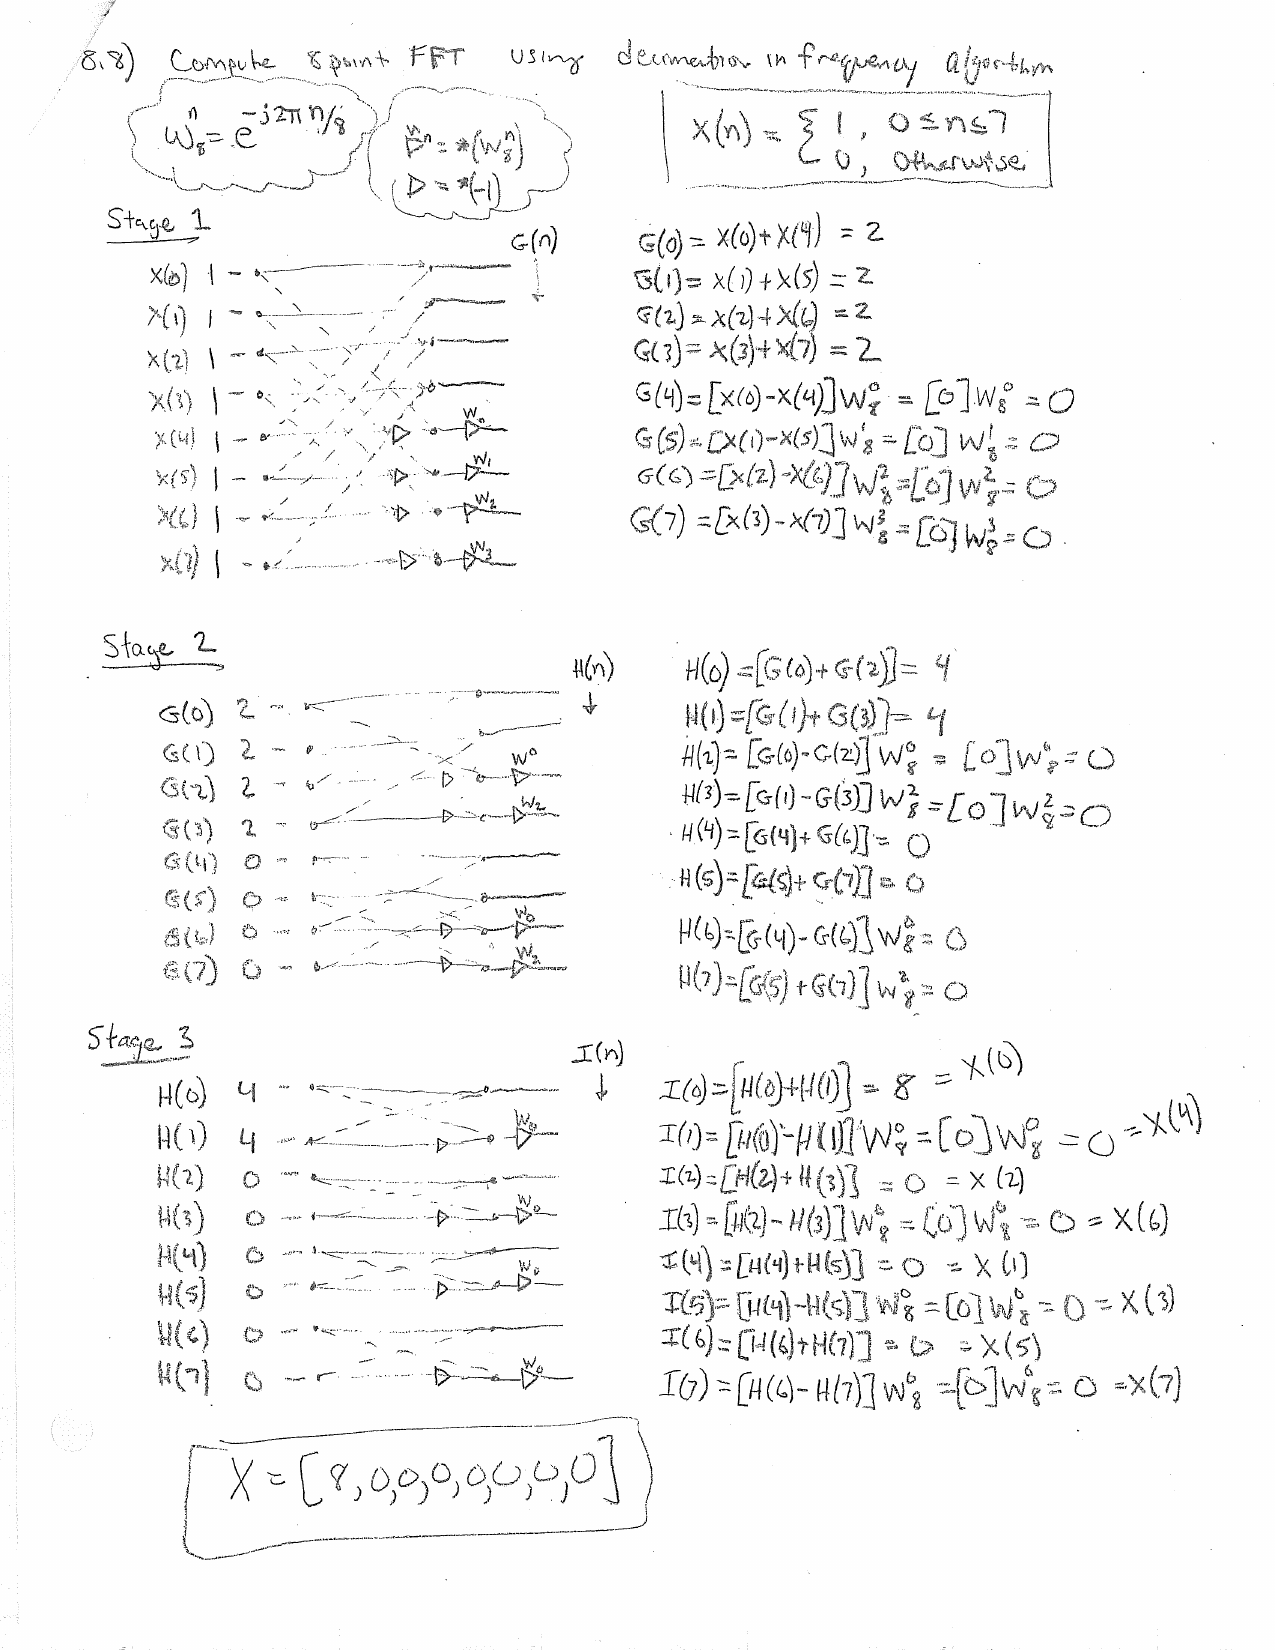 8.8) Compute 8 point FFT using decimation in frequency algorithm
W₈ⁿ = e^(-j2πn/8)
▷ⁿ = *(W₈ⁿ)
▷ = *(-1)
x(n) = { 1, 0≤n≤7
0, Otherwise
Stage 1
G(n)
X(0) 1
X(1) 1
X(2) 1
X(3) 1
X(4) 1 W₀
X(5) 1 W₁
X(6) 1 W₂
X(7) 1 W₃
G(0) = X(0)+X(4) = 2
G(1) = X(1)+X(5) = 2
G(2) = X(2)+X(6) = 2
G(3) = X(3)+X(7) = 2
G(4) = [X(0)-X(4)]W₈⁰ = [0]W₈⁰ = 0
G(5) = [X(1)-X(5)]W₈¹ = [0]W₈¹ = 0
G(6) = [X(2)-X(6)]W₈² = [0]W₈² = 0
G(7) = [X(3)-X(7)]W₈³ = [0]W₈³ = 0.
Stage 2
H(n)
G(0) 2
G(1) 2
G(2) 2 W⁰
G(3) 2 W₂
G(4) 0
G(5) 0
G(6) 0 W₀
G(7) 0 W₂
H(0) = [G(0)+G(2)] = 4
H(1) = [G(1)+G(3)] = 4
H(2) = [G(0)-G(2)]W₈⁰ = [0]W₈⁰ = 0
H(3) = [G(1)-G(3)]W₈² = [0]W₈² = 0
H(4) = [G(4)+G(6)] = 0
H(5) = [G(5)+G(7)] = 0
H(6) = [G(4)-G(6)]W₈⁰ = 0
H(7) = [G(5)+G(7)]W₈² = 0
Stage 3
I(n)
H(0) 4
H(1) 4 W₀
H(2) 0
H(3) 0 W₀
H(4) 0
H(5) 0 W₀
H(6) 0
H(7) 0 W₀
I(0) = [H(0)+H(1)] = 8 = X(0)
I(1) = [H(0)-H(1)]W₈⁰ = [0]W₈⁰ = 0 = X(4)
I(2) = [H(2)+H(3)] = 0 = X(2)
I(3) = [H(2)-H(3)]W₈⁰ = [0]W₈⁰ = 0 = X(6)
I(4) = [H(4)+H(5)] = 0 = X(1)
I(5) = [H(4)-H(5)]W₈⁰ = [0]W₈⁰ = 0 = X(3)
I(6) = [H(6)+H(7)] = 0 = X(5)
I(7) = [H(6)-H(7)]W₈⁰ = [0]W₈⁰ = 0 = X(7)
X = [8,0,0,0,0,0,0,0]